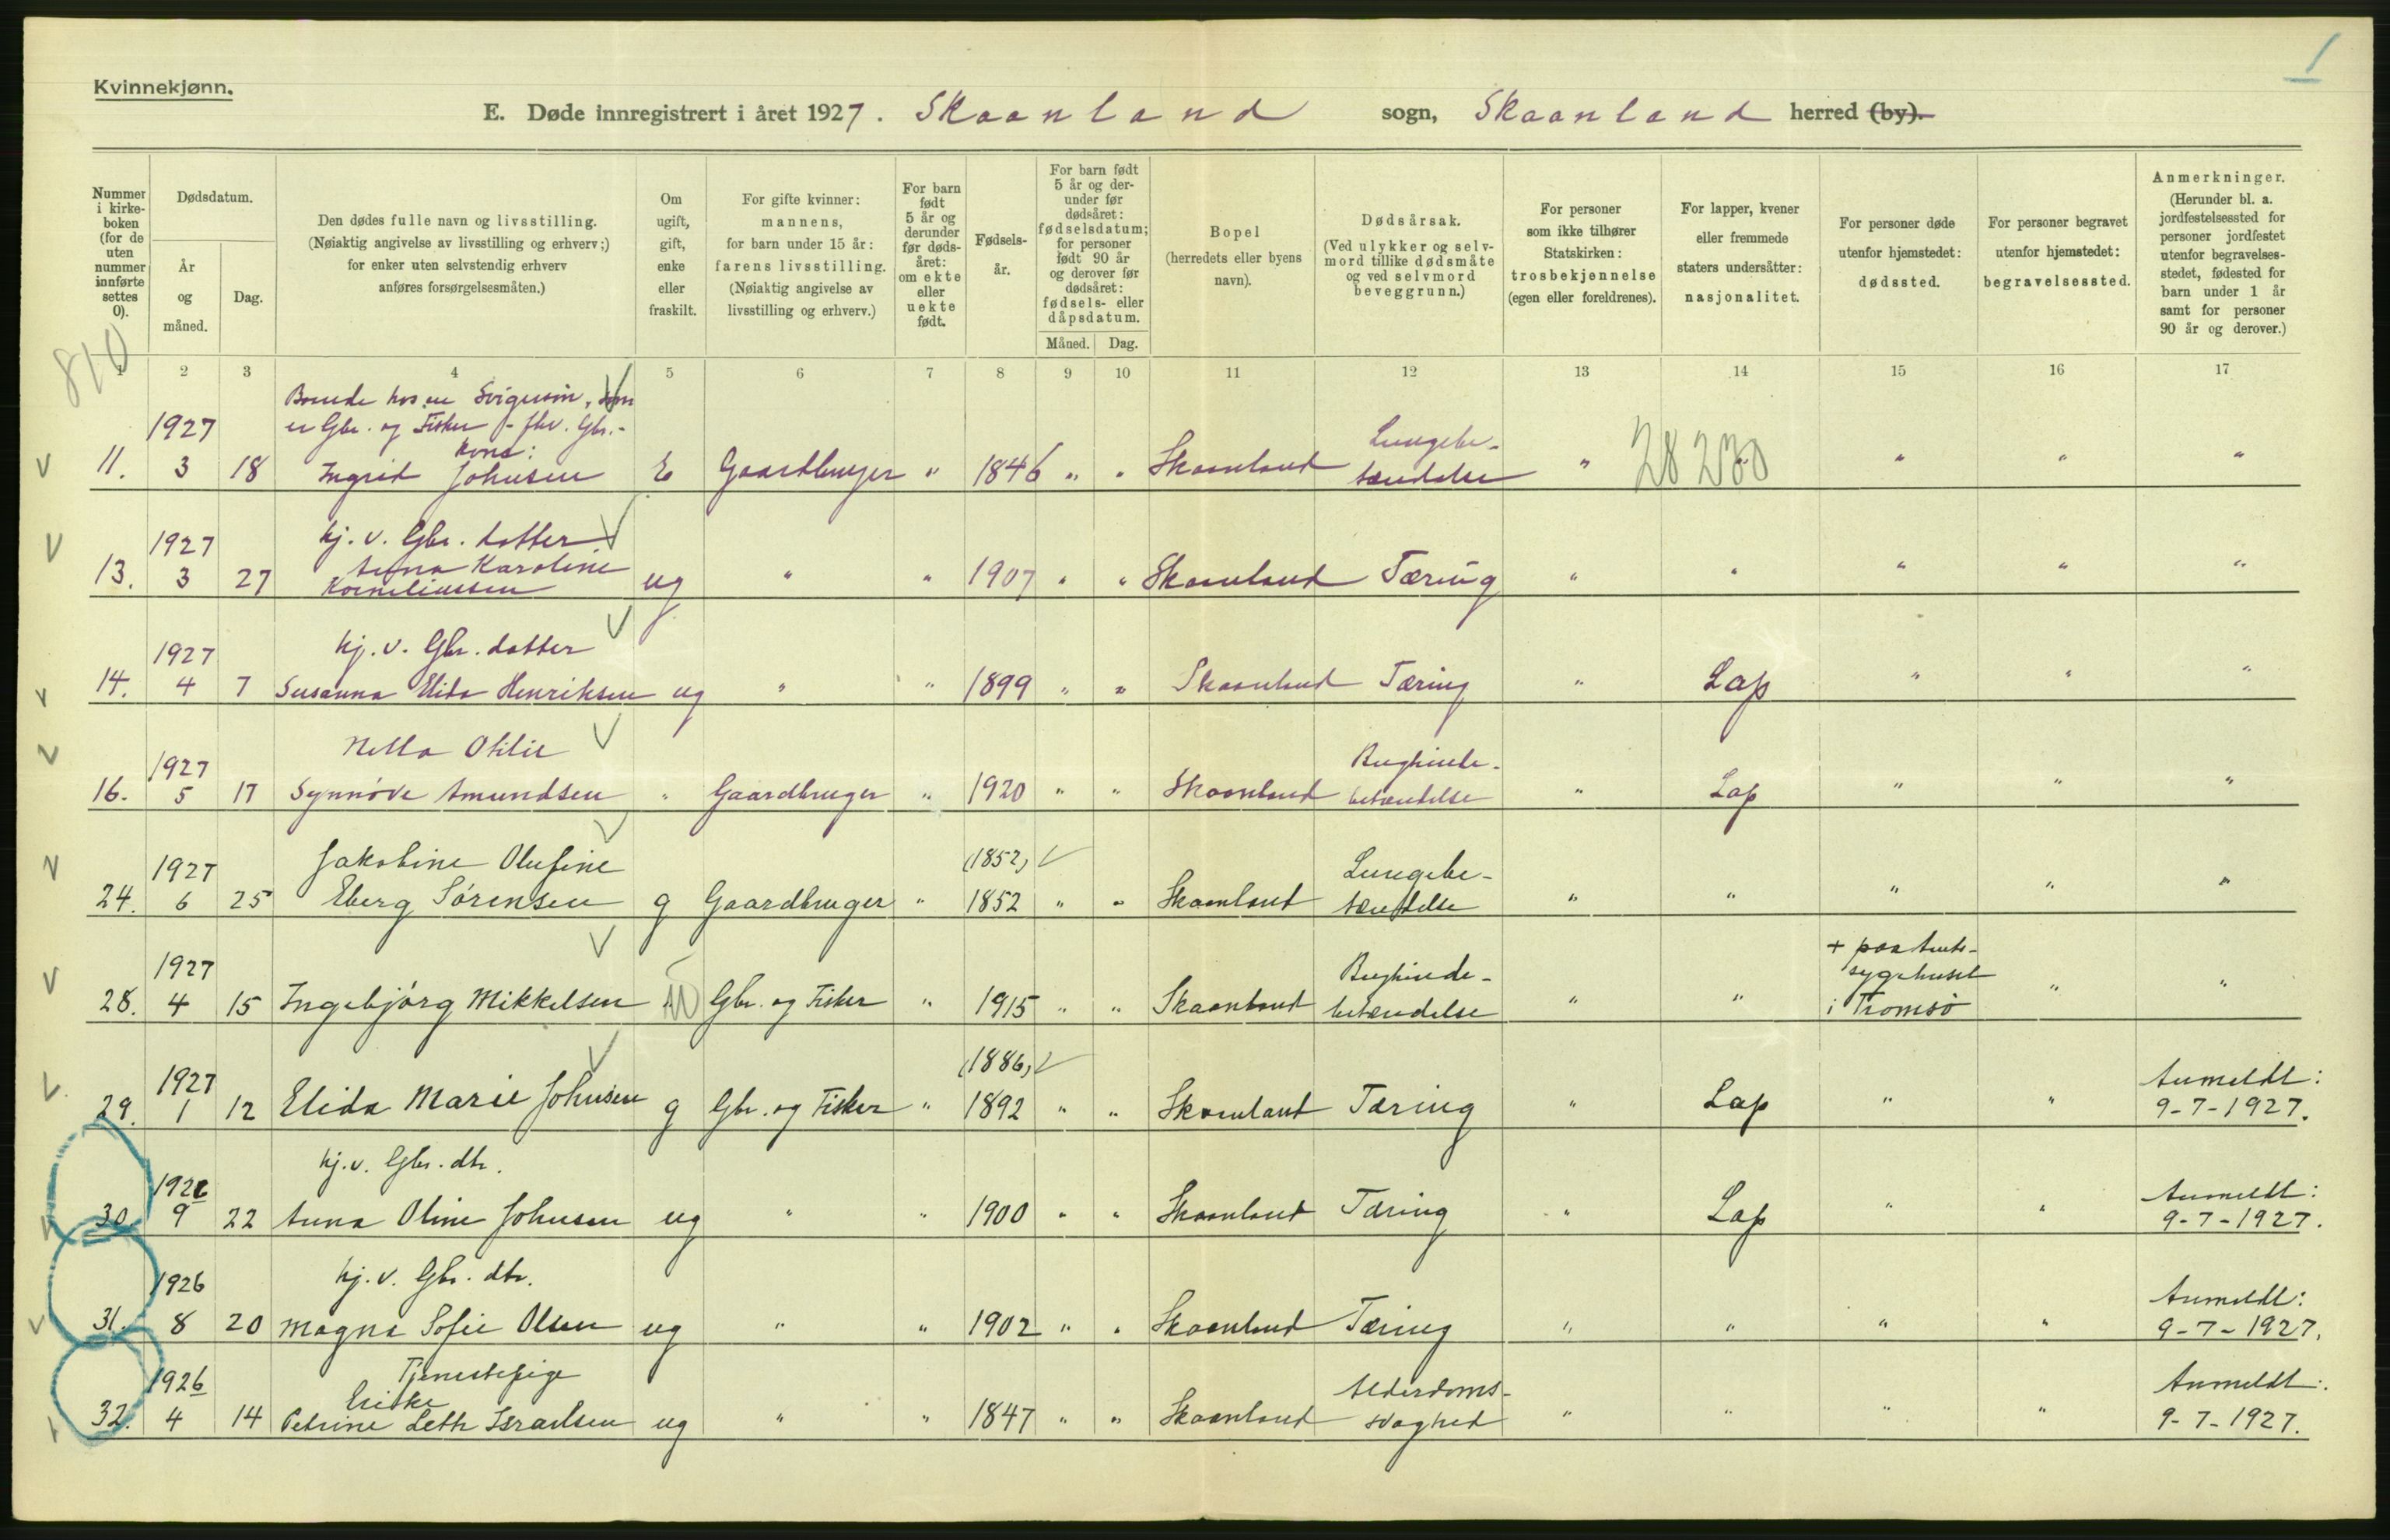 1
Kvinnekjønn.
E. Døde innregistrert i året 1927. Skaanland sogn, Skaanland herred (by).
Nummer i kirkeboken (for de uten nummer innførte settes 0).
Dødsdatum.
År og måned.
Dag.
Den dødes fulle navn og livsstilling.
(Nøiaktig angivelse av livsstilling og erhverv;)
for enker uten selvstendig erhverv
anføres forsørgelsesmåten.)
Om ugift, gift, enke eller fraskilt.
For gifte kvinner: mannens, for barn under 15 år: farens livsstilling. (Nøiaktig angivelse av livsstilling og erhverv.)
For barn født 5 år og derunder før dødsåret: om ekte eller uekte født.
Fødselsår.
For barn født 5 år og derunder før dødsåret: fødselsdatum; for personer født 90 år og derover før dødsåret: fødsels- eller dåpsdatum.
Måned. Dag.
Bopel (herredets eller byens navn).
Dødsårsak.
(Ved ulykker og selvmord tillike dødsmåte og ved selvmord beveggrunn.)
For personer som ikke tilhører Statskirken: trosbekjennelse (egen eller foreldrenes).
For lapper, kvener eller fremmede staters undersåtter: nasjonalitet.
For personer døde utenfor hjemstedet: dødssted.
For personer begravet utenfor hjemstedet: begravelsessted.
Anmerkninger.
(Herunder bl. a. jordfestelsessted for personer jordfestet utenfor begravelsesstedet, fødested for barn under 1 år samt for personer 90 år og derover.)
810
1 2 3 4 5 6 7 8 9 10 11 12 13 14 15 16 17
Boende hos en Svigersøn, som
1927 er Gbr. og Fisker - fhv. Gbr.-
Kone: Lungebe-
11. 3 18 Ingrid Johnsen E Gaardbruger " 1846 " " Skaanland tændelse " 28 230 " " "
1927 hj. v. Gbr. datter
Anna Karoline
13. 3 27 Korneliussen ug " " 1907 " " Skaanland Tæring " " " " "
1927 hj. v. Gbr. datter
14. 4 7 Susanna Elida Henriksen ug " " 1899 " " Skaanland Tæring " Lap " " "
1927 Nella Otilie Bughinde-
16. 5 17 Synnöve Amundsen " Gaardbruger " 1920 " " Skaanland betændelse " Lap " " "
1927 Jakobine Olufine (1852) Lungebe-
24. 6 25 Eberg Sörensen g Gaardbruger " 1852 " " Skaanland tændelse " " " " "
1927 Bughinde- + paa Amts-
sygehuset
28. 4 15 Ingebjörg Mikkelsen " Gbr. og Fisker " 1915 " " Skaanland betændelse " " i Tromsö " "
1927 (1886) Anmeldt:
29. 1 12 Elida Marie Johnsen g Gbr. og Fisker " 1892 " " Skaanland Tæring " Lap " " 9-7-1927.
1926 hj. v. Gbr. dtr. Anmeldt:
30. 9 22 Anna Oline Johnsen ug " " 1900 " " Skaanland Tæring " Lap " " 9-7-1927.
1926 hj. v. Gbr. dtr. Anmeldt:
31. 8 20 Magna Sofie Olsen ug " " 1902 " " Skaanland Tæring " " " " 9-7-1927.
1926 Tjenestepige Alderdoms- Anmeldt:
32. 4 14 Petrine Israelsen ug " " 1847 " " Skaanland svaghed " " " " 9-7-1927.